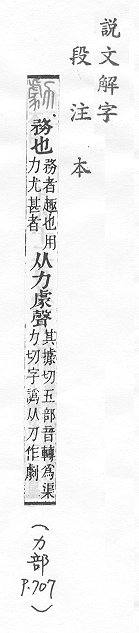 說文解字
段注本
勮
務也
務者趣也用
力尤甚者
从力豦聲
其據切五部音轉爲渠
力切字譌从刀作劇
(力部
P.707)